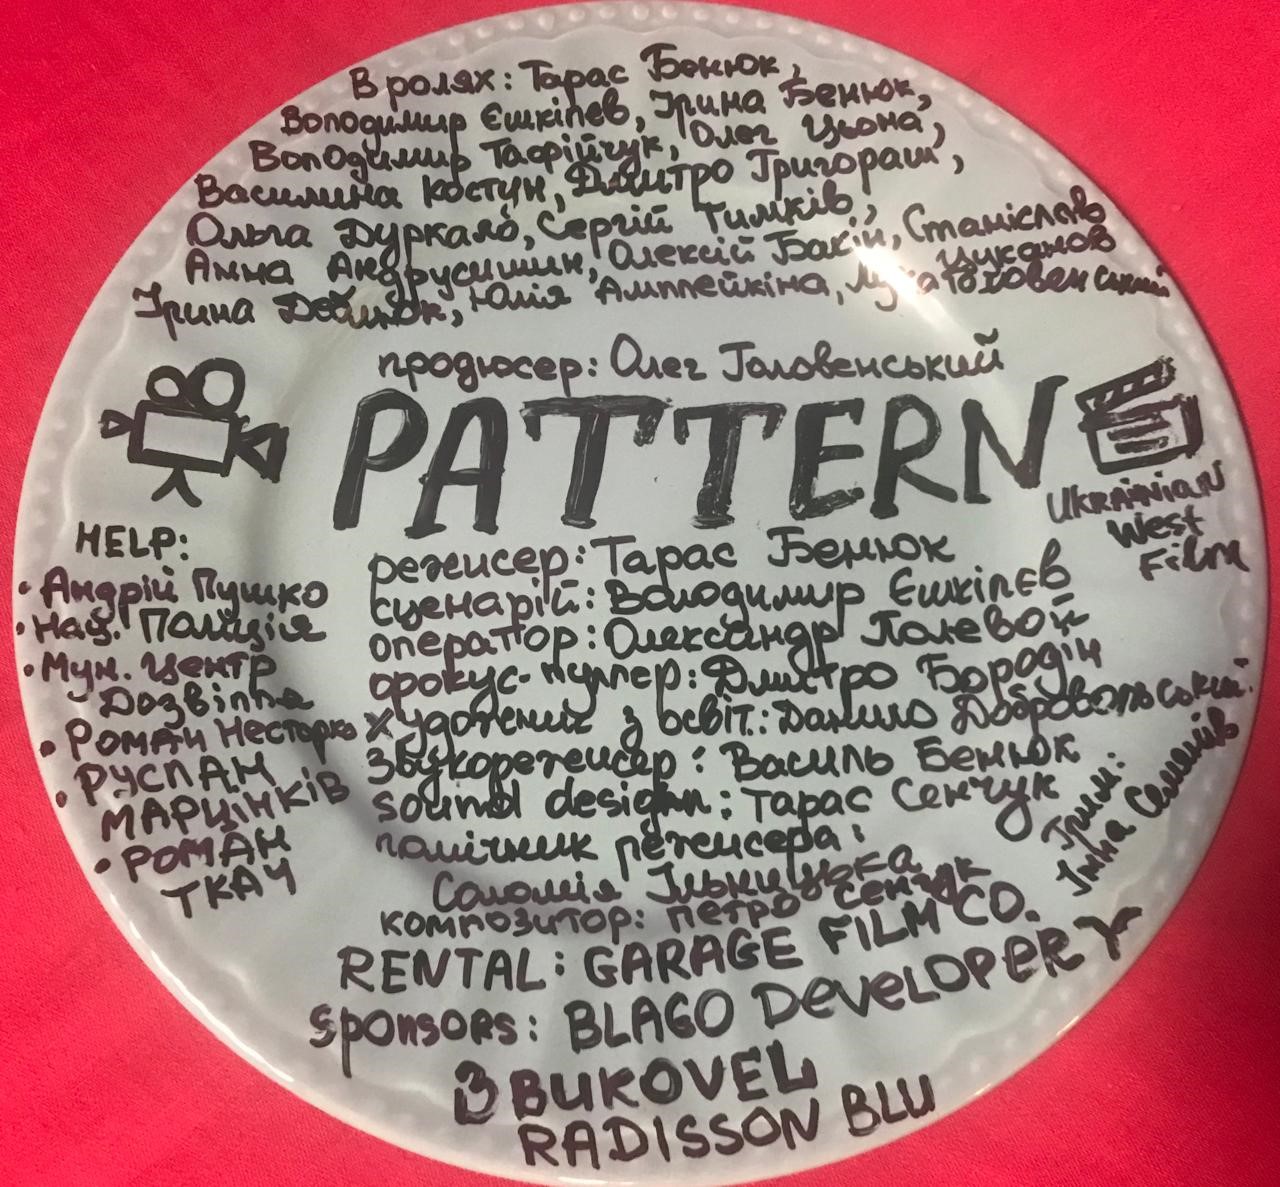 В ролях: Тарас Бенюк,
Володимир Єшкілєв, Ірина Бенюк,
Володимир Тафійчук, Олег Цьона,
Василина Костун, Дмитро Григораш,
Ольга Дуркало, Сергій Тимків,
Анна Андрусишин, Олексій Бакін, Станіслав Цуканов
Ірина Юлія Амплейкіна,
продюсер: Олег Головенський
PATTERN
UKRAINIAN
West
Film
HELP:
• Андрій Пушко
• Нац. Поліція
• Мун. Центр
Дозвілля
• Роман Несторко
• РУСЛАН
МАРЦІНКІВ
• РОМАН
ТКАЧ
режисер: Тарас Бенюк
сценарій: Володимир Єшкілєв
оператор: Олександр Полевой
фокус-пуллер: Дмитро Бородін
художник з освіт.: Данило Добровольський
звукорежисер: Василь Бенюк
sound design: Тарас Сенчук
помічник режисера:
Соломія Ільницька
композитор: Петро Сенчук
Грим:
Інна Семків
RENTAL: GARAGE FILM CO.
Sponsors: BLAGO DeVeLOPeR
BUKOVEL
RADISSON BLU